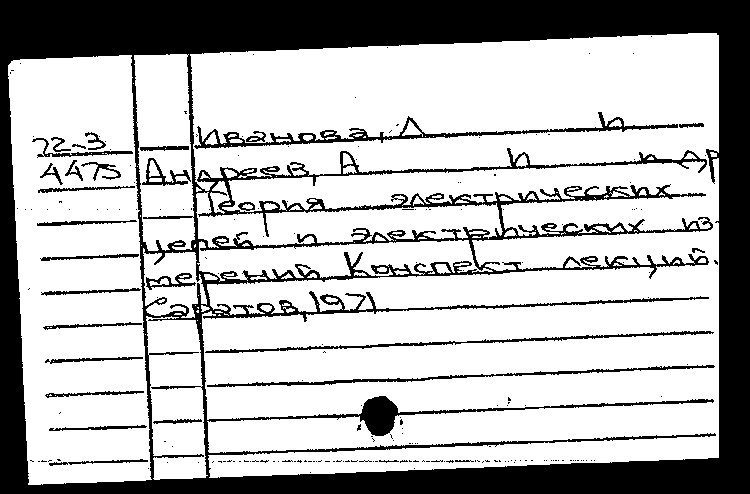 72-3 Иванова, Л и
4475 Андреев, А и и др
Теория электрических
цепей и электрических из-
мерений. Конспект лекций.
Саратов, 1971